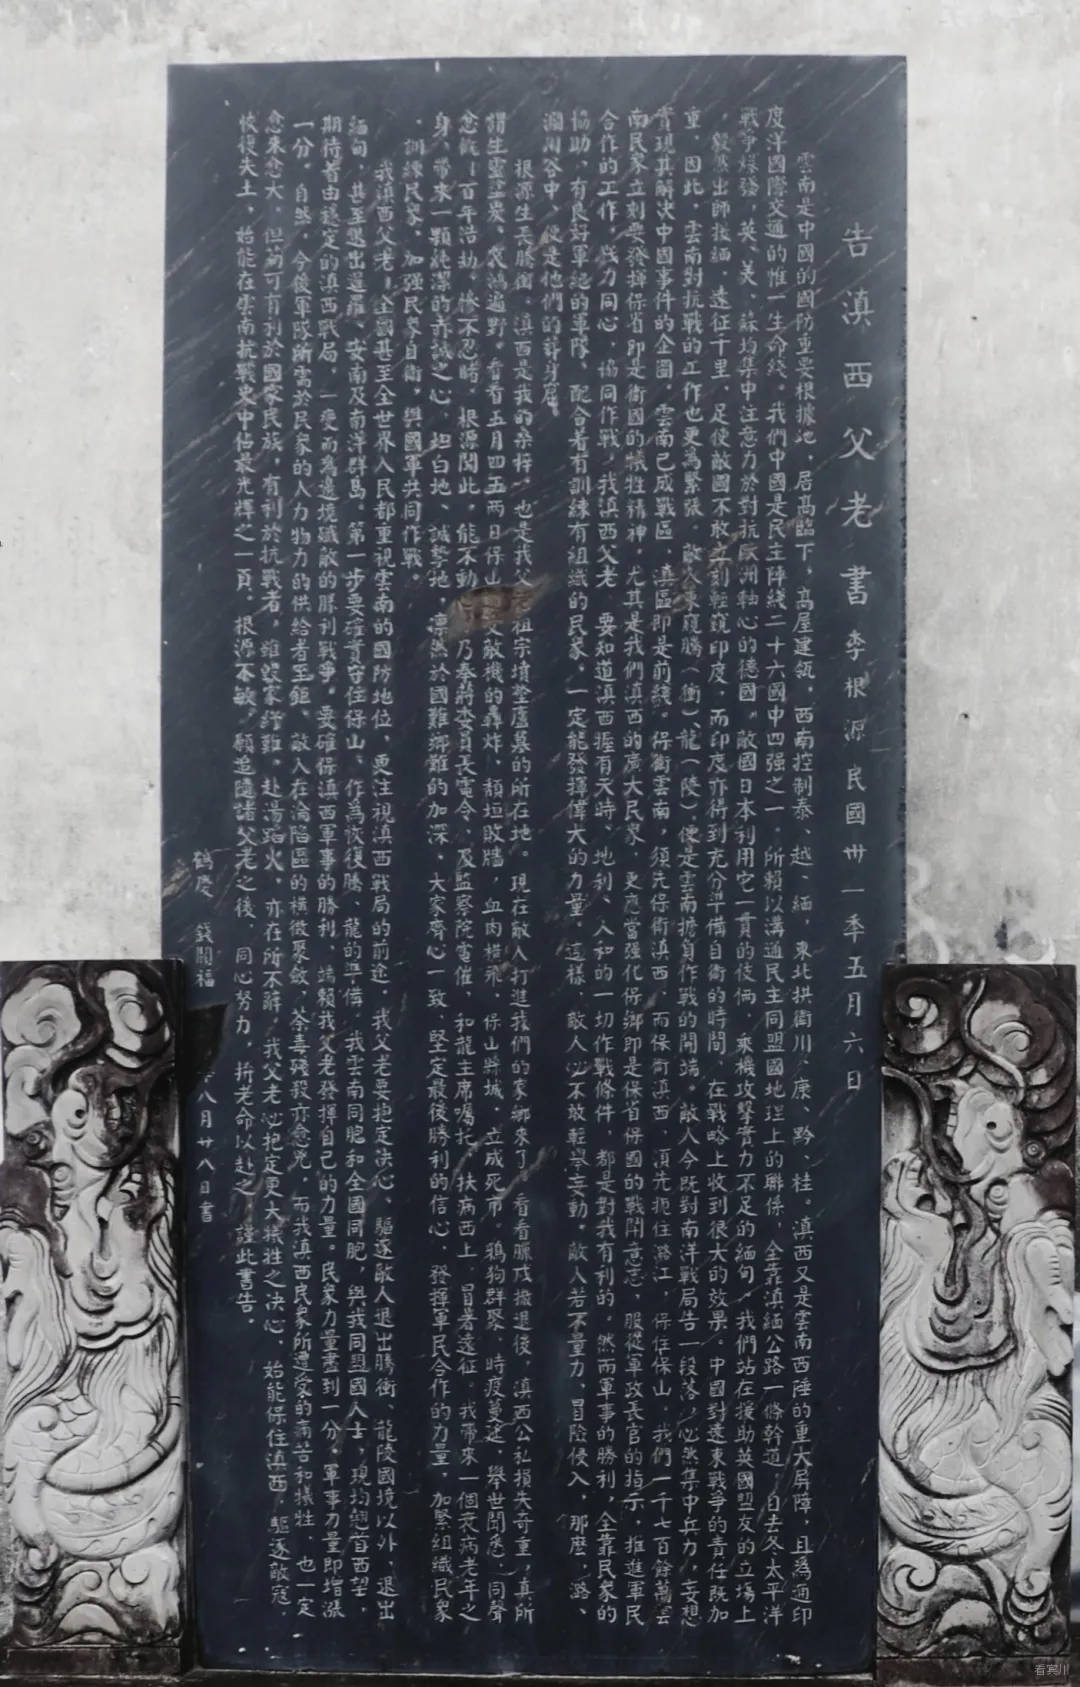 告滇西父老書 李根源 民國卅一年五月六日
雲南是中國的國防重要根據地，居髙臨下，髙屋建瓴，西南控制泰、越、緬，東北拱衛川、康、黔、桂。滇西又是雲南西陲的重大屏障，且為通印
度洋國際交通的惟一生命綫。我們中國是民主陣綫二十六國中四强之一，所賴以溝通民主同盟國地理上的聯係，全靠滇緬公路一條幹道。自去冬太平洋
戰爭爆發，英、美、蘇均集中注意力於對抗歐洲軸心的德國。敵國日本利用它一貫的伎倆，乘機攻擊實力不足的緬甸。我們站在援助英國盟友的立場上
，毅然出師援緬，遠征千里，足使敵國不敢立刻輕窺印度，而印度亦得到充分準備自衛的時間，在戰略上收到很大的效果。中國對遠東戰爭的責任既加
重，因此，雲南對抗戰的工作也更為緊張，敵人東窺騰（衝）、龍（陵），便是雲南擔負作戰的開端。敵人今既對南洋戰局告一段落，必然集中兵力，妄想
實現其解決中國事件的企圖，雲南已成戰區，滇區即是前綫。保衛雲南，須先保衛滇西，而保衛滇西，須先扼住潞江，保住保山。我們一千七百餘萬雲
南民眾立刻要發揮保省即是衛國的犧牲精神，尤其是我們滇西的廣大民眾，更應當强化保鄉即是保省保國的戰鬥意志，服從軍政長官的指示，推進軍民
合作的工作，戮力同心，協同作戰，我滇西父老，要知道滇西握有天時、地利、人和的一切作戰條件，都是對我有利的。然而軍事的勝利，全靠民眾的
協助，有良好軍紀的軍隊，配合着有訓練有組織的民眾，一定能發揮偉大的力量，這樣，敵人必不敢輕舉妄動。敵人若不量力，冒險侵入，那麽，潞、
瀾川谷中，便是他們的葬身窟。
根源生長騰衝，滇西是我的桑梓，也是我父老祖宗墳塋廬墓的所在地。現在敵人打進我們的家鄉來了。看看臘戌撤退後，滇西公私損失奇重，真所
謂生靈塗炭、哀鴻遍野。看看五月四五兩日保山遭受敵機的轟炸，頹垣敗牆，血肉橫飛，保山縣城，立成死市。鴉狗群聚，時疫蔓延，舉世聞悉，同聲
愈慨！百年浩劫，慘不忍睹。根源閱此，能不動心，乃奉蔣委員長電令、及監察院電催，和龍主席囑托，扶病西上，冒暑遠征，我帶來一個衰病老年之
身，帶來一顆純潔的赤誠之心，坦白地、誠摯地，凛然於國難鄉難的加深，大家齊心一致，堅定最後勝利的信心，發揮軍民合作的力量，加緊組織民眾
，訓練民眾，加强民眾自衛，與國軍共同作戰。
我滇西父老！全國甚至全世界人民都重視雲南的國防地位，更注視滇西戰局的前途，我父老要抱定决心，驅逐敵人退出騰衝、龍陵國境以外，退出
緬甸，甚至退出暹羅、安南及南洋群島。第一步要確實守住保山，作為恢復騰、龍的準備，我雲南同胞和全國同胞，與我同盟國人士，現均翹首西望，
期待着由穩定的滇西戰局，一變而為邊境殲敵的勝利戰爭。要確保滇西軍事的勝利，端賴我父老發揮自己的力量。民眾力量盡到一分，軍事力量即增漲
一分，自然，今後軍隊所需於民眾的人力物力的供給者至鉅，敵人在淪陷區的橫徵聚斂，荼毒殘殺亦愈兇，而我滇西民眾所遭受的痛苦和犧牲，也一定
愈來愈大，但苟可有利於國家民族，有利於抗戰者，雖毀家紓難，赴湯蹈火，亦在所不辭，我父老必抱定更大犧牲之决心，始能保住滇西，驅逐敵寇，
恢復失土，始能在雲南抗戰史中佔最光輝之一頁，根源不敏，願追隨諸父老之後，同心努力，拚老命以赴之，謹此書告。
鶴慶 錢開福 八月廿八日書
看宾川